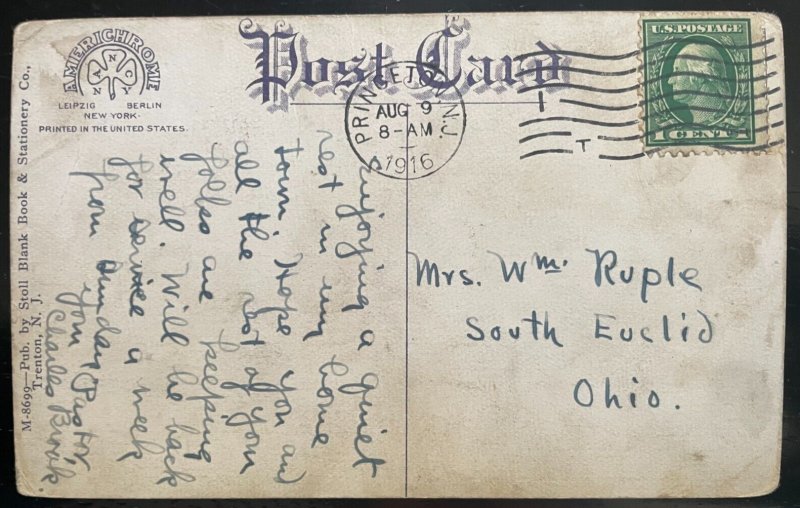 AMERICHROME
NANCY
LEIPZIG BERLIN
NEW YORK.
PRINTED IN THE UNITED STATES.
Post Card
PRINCETON, N.J.
AUG 9
8-AM
1916
U.S. POSTAGE
1 CENT 1
M-8699—Pub. by Stoll Blank Book & Stationery Co.,
Trenton, N. J.
Enjoying a quiet
rest in my home
town. Hope you and
all the rest of your
folks are keeping
well. Will be back
for service a week
from Sunday.
your Pastor,
Charles
Mrs. Wm. Ruple
South Euclid
Ohio.